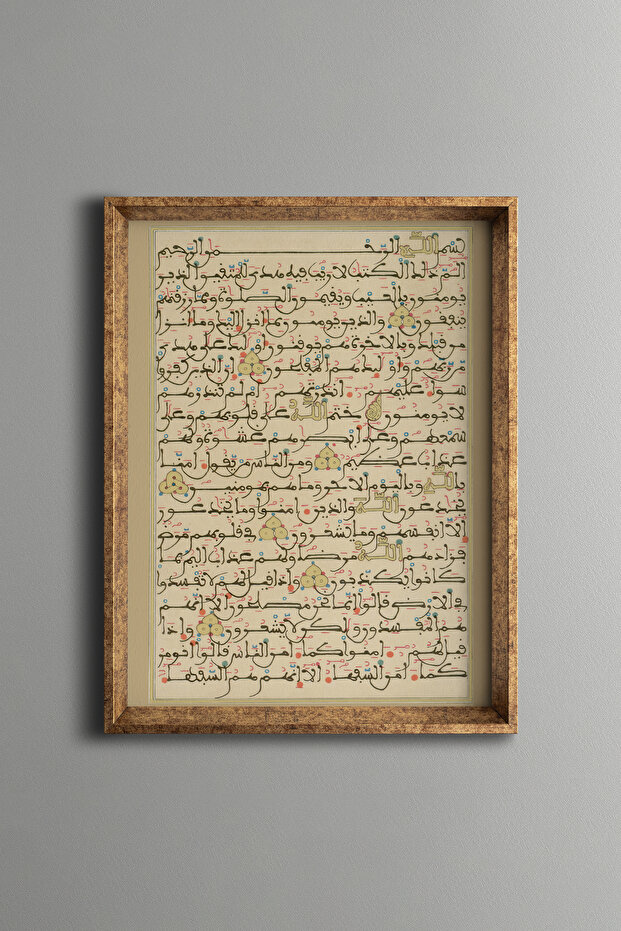 بسم الله الرحمن الرحيم
الم ذلك الكتاب لا ريب فيه هدى للمتقين الذين
يومنون بالغيب ويقيمون الصلوة ومما رزقنهم
ينفقون والذين يومنون بما انزل اليك وما انزل
من قبلك وبالاخرة هم يوقنون اوليك على هدى
من ربهم واوليك هم المفلحون ان الذين كفروا
سواء عليهم ءانذرتهم ام لم تنذرهم
لا يومنون ختم الله على قلوبهم وعلى
سمعهم وعلى ابصرهم غشوة ولهم
عذاب عظيم ومن الناس من يقول امنا
بالله وباليوم الاخر وما هم بمومنين
يخدعون الله والذين امنوا وما يخدعون
الا انفسهم وما يشعرون في قلوبهم مرض
فزادهم الله مرضا ولهم عذاب اليم بما
كانوا يكذبون واذا قيل لهم لا تفسدوا
في الارض قالوا انما نحن مصلحون الا انهم
هم المفسدون ولكن لا يشعرون واذا
قيل لهم امنوا كما امن الناس قالوا انومن
كما امن السفهاء الا انهم هم السفهاء